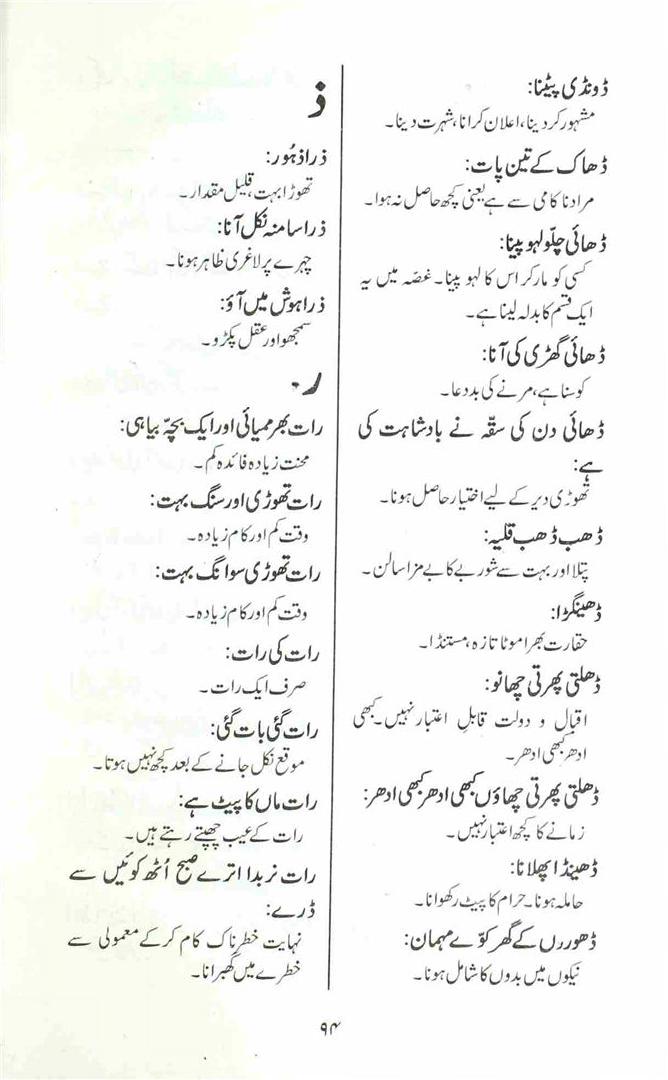 ڈونڈی پیٹنا:
مشہور کر دینا، اعلان کرانا، شہرت دینا۔
ڈھاک کے تین پات:
مراد ناکامی سے ہے یعنی کچھ حاصل نہ ہوا۔
ڈھائی چلّو لہو پینا:
کسی کو مار کر اس کا لہو پینا۔ غصّہ میں یہ
ایک قسم کا بدلہ لینا ہے۔
ڈھائی گھڑی کی آنا:
کوسنا ہے، مرنے کی بددعا۔
ڈھائی دن کی سقّہ نے بادشاہت کی
ہے:
تھوڑی دیر کے لیے اختیار حاصل ہونا۔
ڈھب ڈھب قلیہ:
پتلا اور بہت سے شوربے کا بے مزا سالن۔
ڈھینگڑا:
حقارت بھرا موٹا تازہ، مسٹنڈا۔
ڈھلتی پھرتی چھانو:
اقبال و دولت قابلِ اعتبار نہیں۔ کبھی
ادھر کبھی ادھر۔
ڈھلتی پھرتی چھاؤں کبھی ادھر کبھی ادھر:
زمانے کا کچھ اعتبار نہیں۔
ڈھینڈا پھلانا:
حاملہ ہونا۔ حرام کا پیٹ رکھوانا۔
ڈھوروں کے گھر کوّے مہمان:
نیکوں میں بدوں کا شامل ہونا۔
ذ
ذرا ذہُور:
تھوڑا بہت، قلیل مقدار۔
ذرا سا منہ نکل آنا:
چہرے پر لاغری ظاہر ہونا۔
ذرا ہوش میں آؤ:
سمجھو اور عقل پکڑو۔
ر
رات بھر ممیائی اور ایک بچّہ بیاہی:
محنت زیادہ فائدہ کم۔
رات تھوڑی اور سنگ بہت:
وقت کم اور کام زیادہ۔
رات تھوڑی سوانگ بہت:
وقت کم اور کام زیادہ۔
رات کی رات:
صرف ایک رات۔
رات گئی بات گئی:
موقع نکل جانے کے بعد کچھ نہیں ہوتا۔
رات ماں کا پیٹ ہے:
رات کے عیب چھپتے رہتے ہیں۔
رات نربدا اترے صبح اُٹھ کوئیں سے
ڈرے:
نہایت خطرناک کام کر کے معمولی سے
خطرے میں گھبرانا۔
۹۴